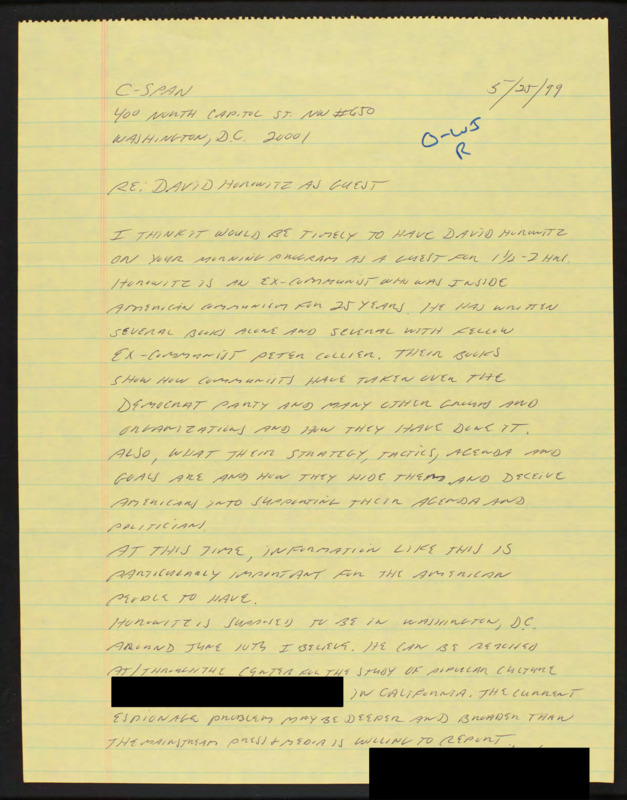 C-SPAN 5/25/99
400 NORTH CAPITOL ST. NW #650
WASHINGTON, D.C. 20001
O-WJ
R
RE: DAVID HOROWITZ AS GUEST
I THINK IT WOULD BE TIMELY TO HAVE DAVID HOROWITZ
ON YOUR MORNING PROGRAM AS A GUEST FOR 1½-2 HRS.
HOROWITZ IS AN EX-COMMUNIST WHO WAS INSIDE
AMERICAN COMMUNISM FOR 25 YEARS. HE HAS WRITTEN
SEVERAL BOOKS ALONE AND SEVERAL WITH FELLOW
EX-COMMUNIST PETER COLLIER. THEIR BOOKS
SHOW HOW COMMUNISTS HAVE TAKEN OVER THE
DEMOCRAT PARTY AND MANY OTHER GROUPS AND
ORGANIZATIONS AND HOW THEY HAVE DONE IT.
ALSO, WHAT THEIR STRATEGY, TACTICS, AGENDA AND
GOALS ARE AND HOW THEY HIDE THEM AND DECEIVE
AMERICANS INTO SUPPORTING THEIR AGENDA AND
POLITICIANS
AT THIS TIME, INFORMATION LIKE THIS IS
PARTICULARLY IMPORTANT FOR THE AMERICAN
PEOPLE TO HAVE.
HOROWITZ IS SUPPOSED TO BE IN WASHINGTON, D.C.
AROUND JUNE 10TH I BELIEVE. HE CAN BE REACHED
AT/THROUGH THE CENTER FOR THE STUDY OF POPULAR CULTURE
IN CALIFORNIA. THE CURRENT
ESPIONAGE PROBLEM MAY BE DEEPER AND BROADER THAN
THE MAINSTREAM PRESS + MEDIA IS WILLING TO REPORT.